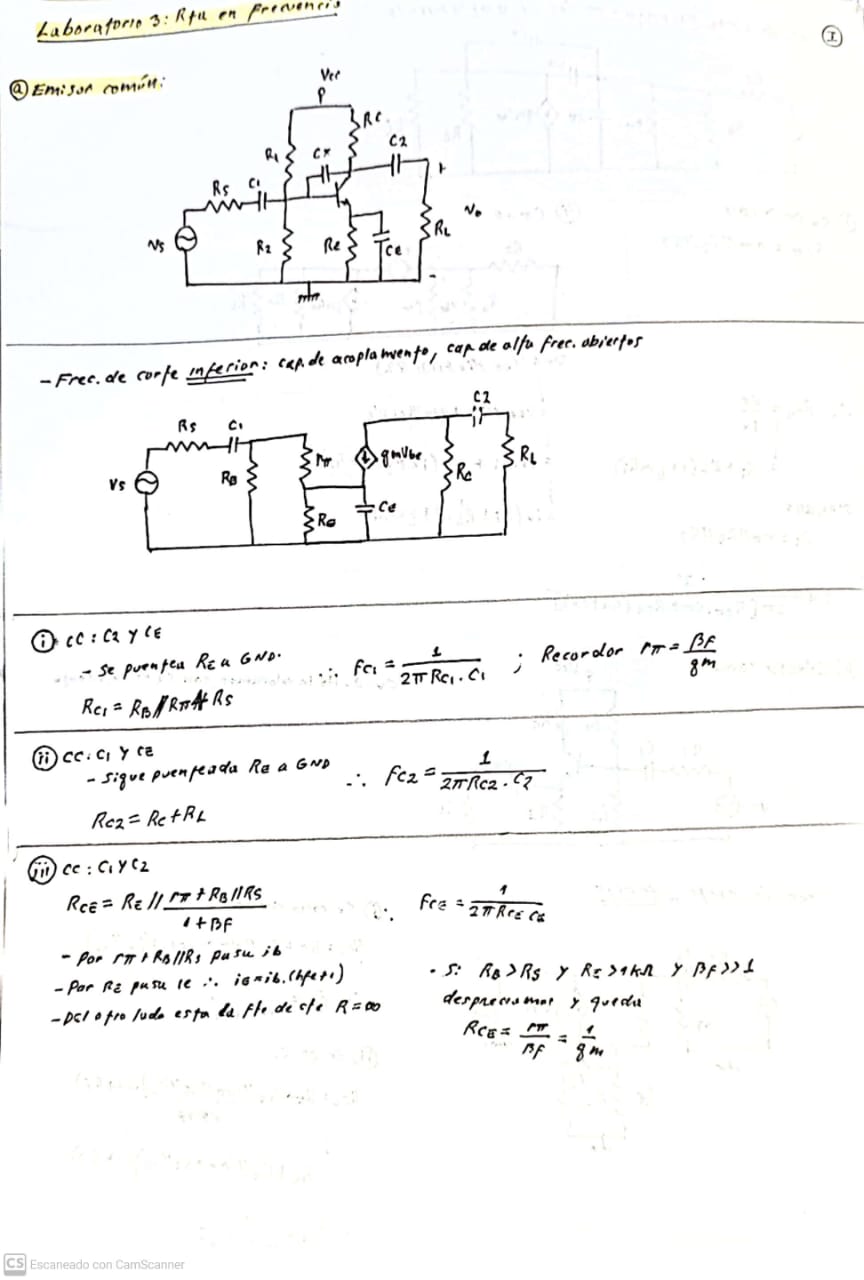 Laboratorio 3: Rta en frecuencia
I
ⓐ Emisor común:
Vcc
RC
R1
CX
C2
RS
C1
+
Vo
RL
VS
R2
Re
Ce
-
- Frec. de corte inferior: cap. de acoplamiento, cap de alta frec. abiertos
C2
RS
C1
rπ
gmVbe
RL
VS
RB
RC
Re
Ce
ⓘ CC: C2 y CE
- Se puentea RE a GND.
∴ fC1 = 1 / 2π RC1 . C1 ; Recordar rπ = βF / gm
RC1 = RB // Rπ + RS
(ii) CC: C1 y CE
- Sigue puenteada Re a GND
∴ fC2 = 1 / 2π RC2 . C2
RC2 = RC + RL
(iii) CC: C1 y C2
RCE = RE // rπ + RB // RS / 1 + βF
∴ fCE = 1 / 2π RCE CE
- Por rπ + RB // RS pasa ib
- Por RE pasa ie ∴ ie = ib. (hfe+1)
- Del otro lado esta la fte de cte R = ∞
- Si RB > RS y RE > 1kΩ y βF >> 1
despreciamos y queda
RCE = rπ / βF = 1 / gm
CS Escaneado con CamScanner